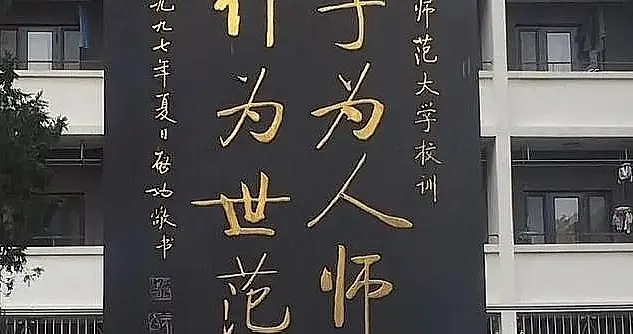 师范大学校训
学为人师
行为世范
一九九七年夏日启功敬书